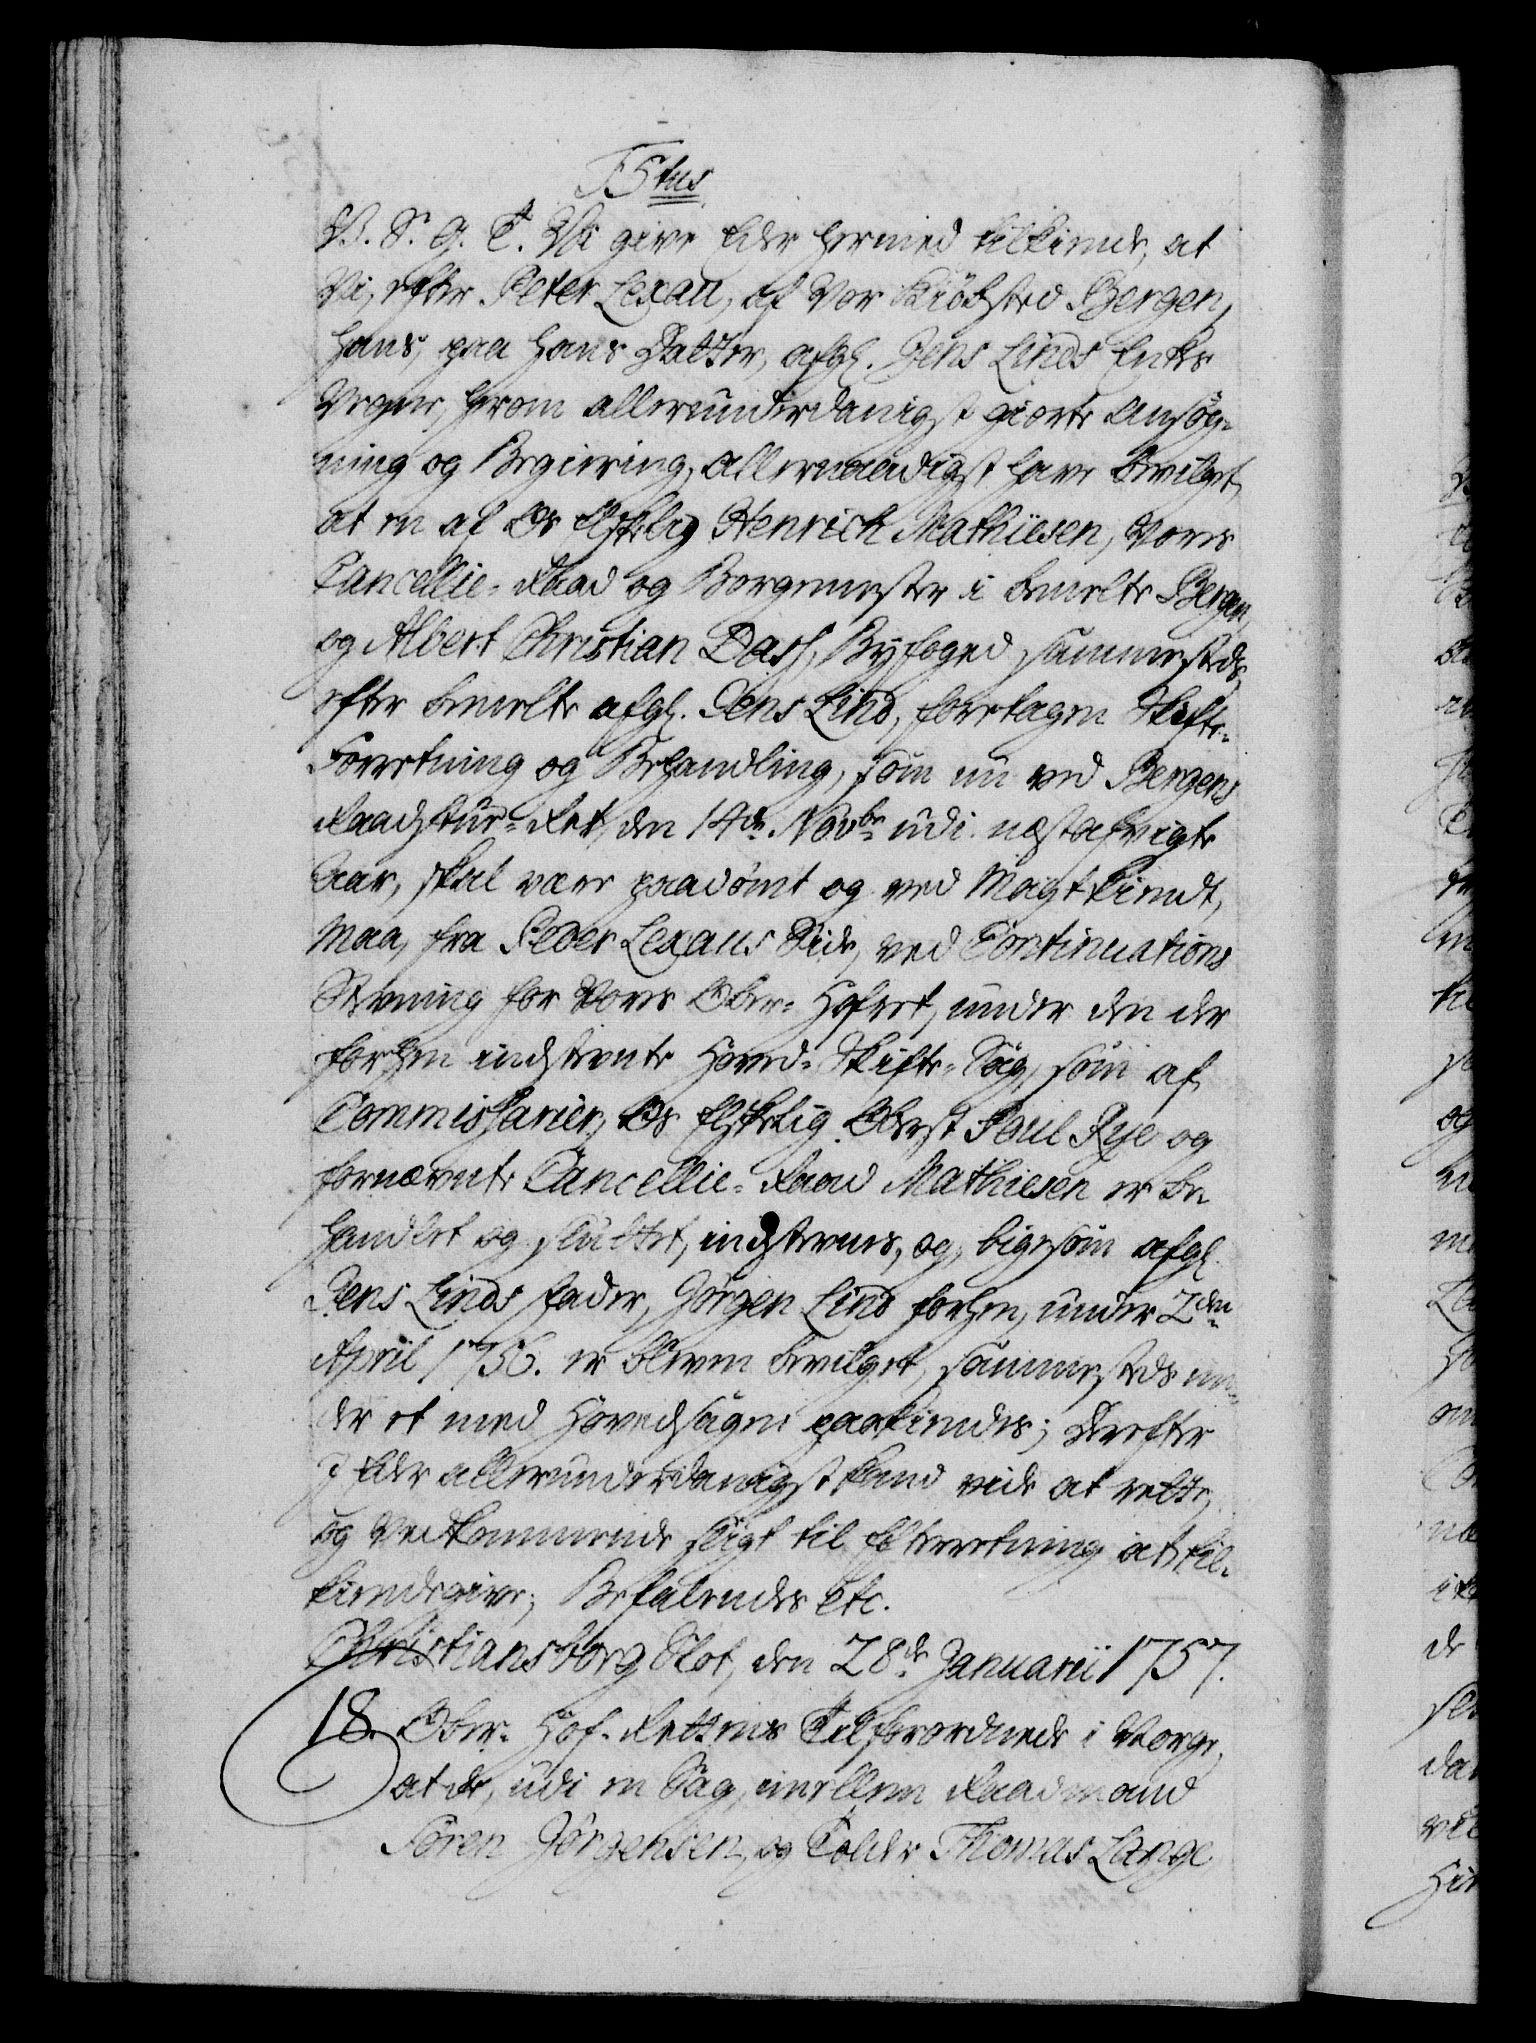 F5tus
V. S. G. T. Vi give Eder hermed tilkiende, at
Vi, efter Peter Lexau, af Vor Kiöbsted Bergen,
hans, paa hans Datter, afg. Jens Linds Enkes
Vegne, herom allerunderdanigst giorte Ansøg-
ning og Begiering, allernaadigst have bevilget,
at en af Os Elskelig Henrich Mathiesen, Vores
Cancellie-Raad og Borgemester i bemelte Bergen,
og Albert Christian Dass, Byfoged sammesteds,
efter bemelte afg. Jens Lind, foretagen Skifte-
Forretning og Behandling, som nu ved Bergens
Raadstue-Ret, den 14de Novbr udi næstafvigte
Aar, skal være paadømt og ved Magt kiendt,
maa, fra Peder Lexaus Side, ved Continuations
Stevning for Vores Ober-Hofret, under den der
forhen indstevnte Hoved-Skifte-Sag, som af
Commissarier, Os Elskelig Oberst Poul Rye og
fornævnte Cancellie-Raad Mathiesen er be
handlet og sluttet, indstevnes, og, ligesom afg.
Jens Linds Fader, Jørgen Lind forhen, under 2den
April 1756. er bleven bevilget, sammesteds un-
der et med Hovedsagen paakiendes; Derefter
I Eder allerunderdanigst kand vide at rette,
og Vedkommende sligt til Efterretning at til-
kiendegive; Befalendes etc.
Christiansborg Slot, den 28de Januarii 1757.
18. Ober-Hof-Rettens Tilforordnede i Norge,
at de, udi en Sag, imellem Raadmand
Sören Jörgensen, og Tolder Thomas Lange